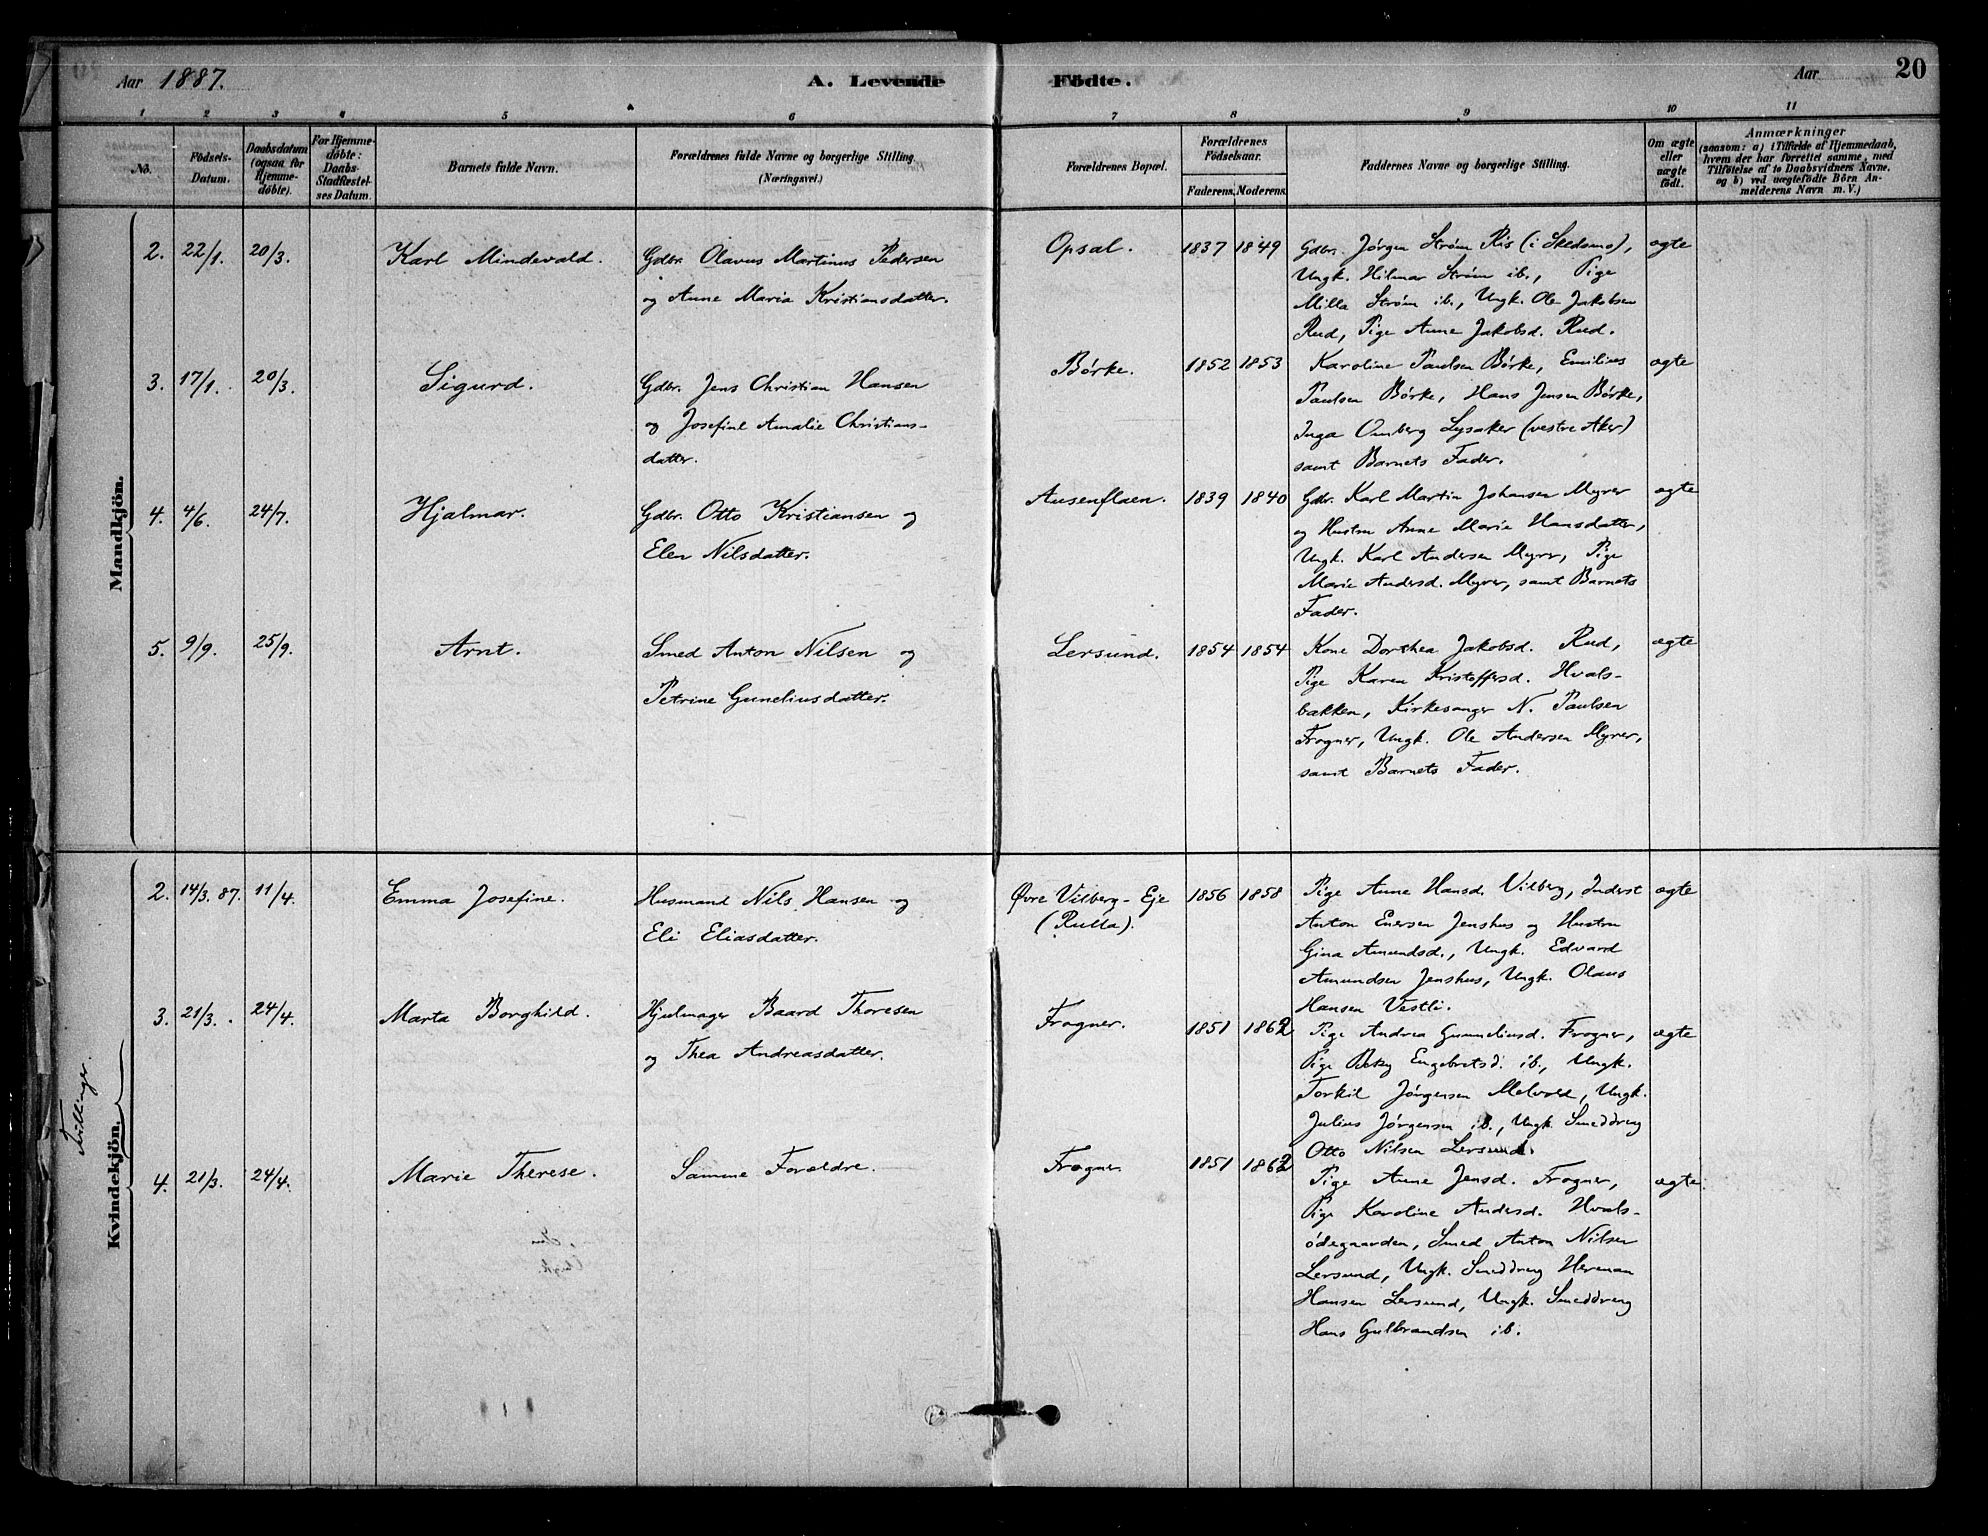 Aar 1887.
A. Levende Födte.
Aar
20
1 2 3 4 5 6 7 8 9 10 11
No.
Födsels-Datum.
Daabsdatum (ogsaa for Hjemme-döbte).
For Hjemme-döbte: Daabs-Stadfæstel-ses Datum.
Barnets fulde Navn.
Forældrenes fulde Navne og borgerlige Stilling.
(Næringsvei.)
Forældrenes Bopæl.
Forældrenes Födselsaar.
Faderens. Moderens.
Faddernes Navne og borgerlige Stilling.
Om ægte eller uægte födt.
Anmærkninger
(saasom: a) i Tilfælde af Hjemmedaab,
hvem der har forrettet samme, med
Tilföielse af to Daabsvidners Navne,
og b) ved uægtefödte Börn An-
melderens Navn m. V.)
Mandkjön.
2. 22/1. 20/3. Karl Mindevald. Gdbr. Olavus Martinus Pedersen
og Anne Maria Kristiansdatter.
Opsal. 1837 1849 Gdbr. Jørgen Strøm Ris (i Skedsmo), ægte
Ungk. Hilmar Strøm ib., Pige
Milla Strøm ib., Ungk. Ole Jakobsen
Rud, Pige Anne Jakobsd. Rud.
3. 17/1. 20/3. Sigurd. Gdbr. Jens Christian Hansen
og Josefine Amalie Christians-
datter.
Børke. 1852 1853 Karoline Paulsen Børke, Emilius ægte
Paulsen Børke, Hans Jensen Børke,
Inga Omberg Lysaker (vestre Aker)
samt Barnets Fader.
4. 4/6. 24/7. Hjalmar. Gdbr. Otto Kristiansen og
Elen Nilsdatter.
Ausenflaen. 1839 1840 Gdbr. Karl Martin Johansen Myrer ægte
og Hustru Anne Marie Hansdatter,
Ungk. Karl Andersen Myrer, Pige
Marie Andersd. Myrer, samt Barnets
Fader.
5. 9/9. 25/9. Arnt. Smed Anton Nilsen og
Petrine Guneliusdatter.
Lersund. 1854 1854 Kone Dorthea Jakobsd. Rud, ægte
Pige Karen Kristoffersd. Hvals-
bakken, Kirkesanger N. Paulsen
Frogner, Ungk. Ole Andersen Myrer,
samt Barnets Fader.
Kvindekjön.
2. 14/3. 87. 11/4. Emma Josefine. Husmand Nils Hansen og
Eli Eliasdatter.
Øvre Vilberg-Eje
(Rulla).
1856 1858 Pige Anne Hansd. Vilberg, Inderst ægte
Anton Enersen Jenshus og Hustru
Gina Amundsd., Ungk. Edvard
Amundsen Jenshus, Ungk. Olaus
Hansen Vestli.
Tvillinger.
3. 21/3. 24/4. Marta Borghild. Hjulmager Baard Thoresen
og Thea Andreasdatter.
Frogner. 1851 1862 Pige Andrea Guneliusd. Frogner, ægte
Pige Engebretsd. ib., Ungk.
Torkil Jørgensen Melvold, Ungk.
Julius Jørgensen ib., Ungk. Smeddreng
Otto Nilsen Lersund.
4. 21/3. 24/4. Marie Therese. Samme Forældre.
Frogner 1851 1862 Pige Anne Jensd. Frogner, ægte.
Pige Karoline Andersd. Hvals-
ødegaarden, Smed Anton Nilsen
Lersund, Ungk. Smeddreng Herman
Hansen Lersund, Ungk. Smeddreng
Hans Gulbrandsen ib.